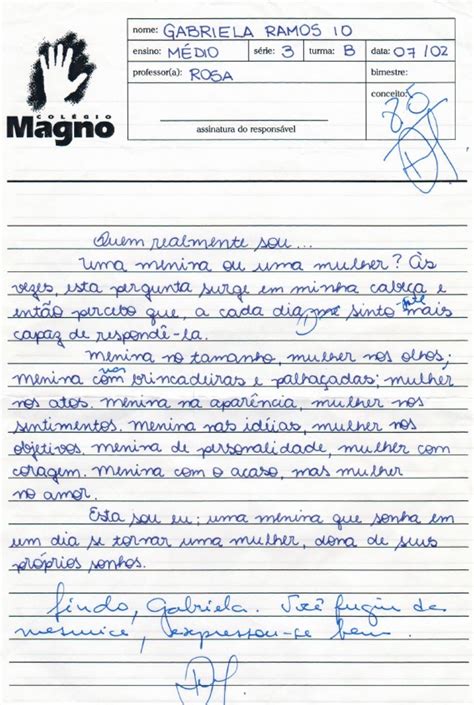 nome: GABRIELA RAMOS 10
ensino: MÉDIO série: 3 turma: B data: 07/02
professor(a): ROSA bimestre:
conceito: 8,5
assinatura do responsável
COLÉGIO
Magno
Quem realmente sou...
Uma menina ou uma mulher? Às
vezes, esta pergunta surge em minha cabeça e
então percebo que, a cada dia, sinto-me mais
capaz de respondê-la.
Menina no tamanho, mulher nos olhos;
menina nas brincadeiras e palhaçadas; mulher
nos atos. Menina na aparência, mulher nos
sentimentos. Menina nas idéias, mulher nos
objetivos. Menina de personalidade, mulher com
coragem. Menina com o acaso, mas mulher
no amor.
Esta sou eu; uma menina que sonha em
um dia se tornar uma mulher, dona de seus
próprios sonhos.
Lindo, Gabriela. Você fugiu da
mesmice, expressou-se bem.